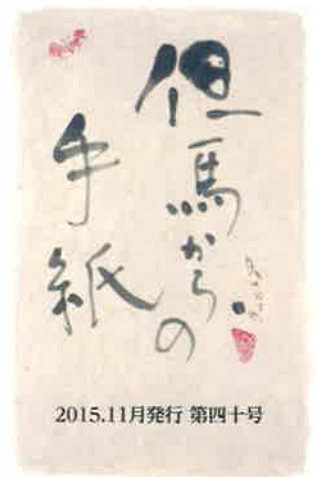 但馬からの
手紙
2015.11月発行 第四十号